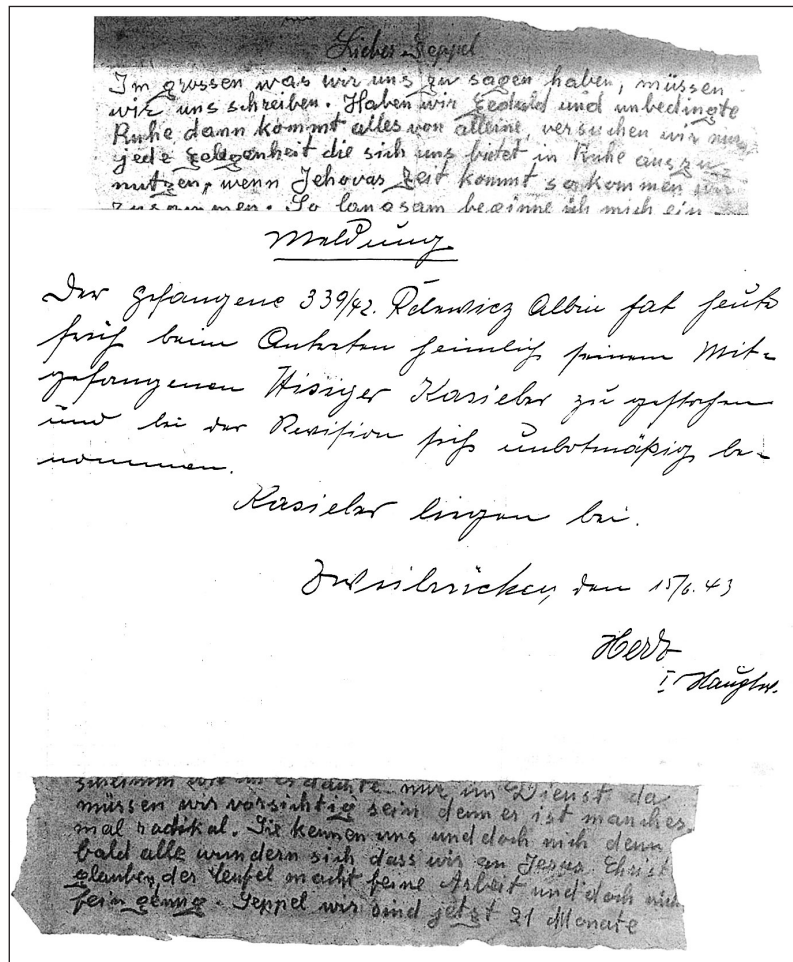 Lieber Seppel
Im grossen was wir uns zu sagen haben, müssen
wir uns schreiben. Haben wir geduld und unbedingte
Ruhe dann kommt alles von alleine, versuchen wir nur
jede gelegenheit die sich uns bietet in Ruhe auszu-
nutzen, wenn Jehovas zeit kommt so kommen wir
zusammen. So langsam beginne ich mich ein-
Meldung
Der Gefangene 339/42. Relewicz Albin hat heute
früh beim Antreten heimlich seinem Mit-
gefangenen Hisiger Kasieber zu gestochen
und bei der Revision sich unbotmäßig be-
nommen.
Kasieber liegen bei.
Zweibrücken, den 15/6.43
I. Hauptw.
nur im Dienst da
müssen wir vorsichtig sein denn er ist manches
mal radikal. Sie kennen uns und doch nich denn
bald alle wundern sich dass wir an Jesus Christ
glauben, der Teufel macht feine Arbeit und doch nich
fein genug. Seppel wir sind jetzt 21 Monate